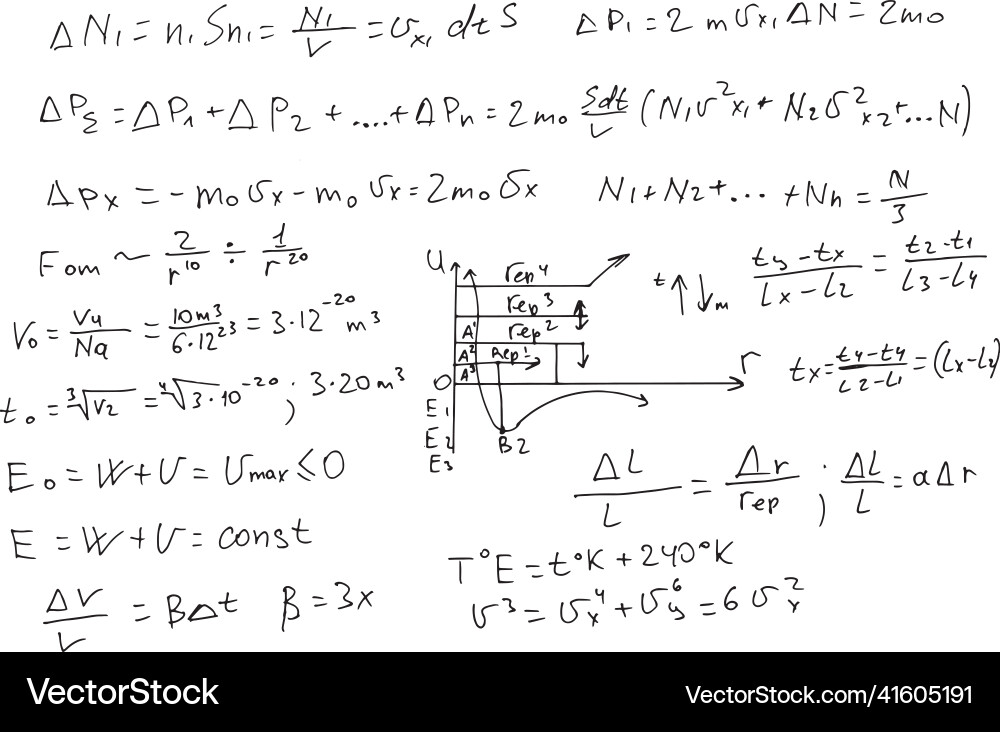 ΔN₁ = n₁Sn₁ = N₁/V = υx₁ dt S
ΔP₁ = 2 m υx₁ ΔN = 2m₀
ΔPΣ = ΔP₁ + ΔP₂ + ....+ ΔPn = 2m₀ Sdt/V (N₁υ²x₁+ N₂υ²x₂+...N)
ΔPx = - m₀ υx - m₀ υx = 2m₀ υx
N₁+N₂+... +Nn = N/3
Fom ~ 2/r¹⁰ ÷ 1/r²⁰
V₀ = Vч/Na = 10m³/6·12²³ = 3·12⁻²⁰ m³
t₀ = ³√V₂ = ⁴√3·10⁻²⁰ ; 3·20m³
E₀ = W+U = Umax ≤ 0
E = W+U = const
ΔV/V = BΔt β = 3x
U
rep⁴
rep³
A¹ rep²
A² Rep¹
A³
O
r
E₁
E₂
E₃
B2
t ↑↓m
ty - tx/Lx - L2 = t2 - t1/L3 - L4
tx = t4 - t4/L2 - L1 = (Lx - L2)
ΔL/L = Δr/rep ; ΔL/L = aΔr
T°E = t°K + 240°K
υ³ = υx⁴ + υy⁶ = 6υx²
VectorStock
VectorStock.com/41605191